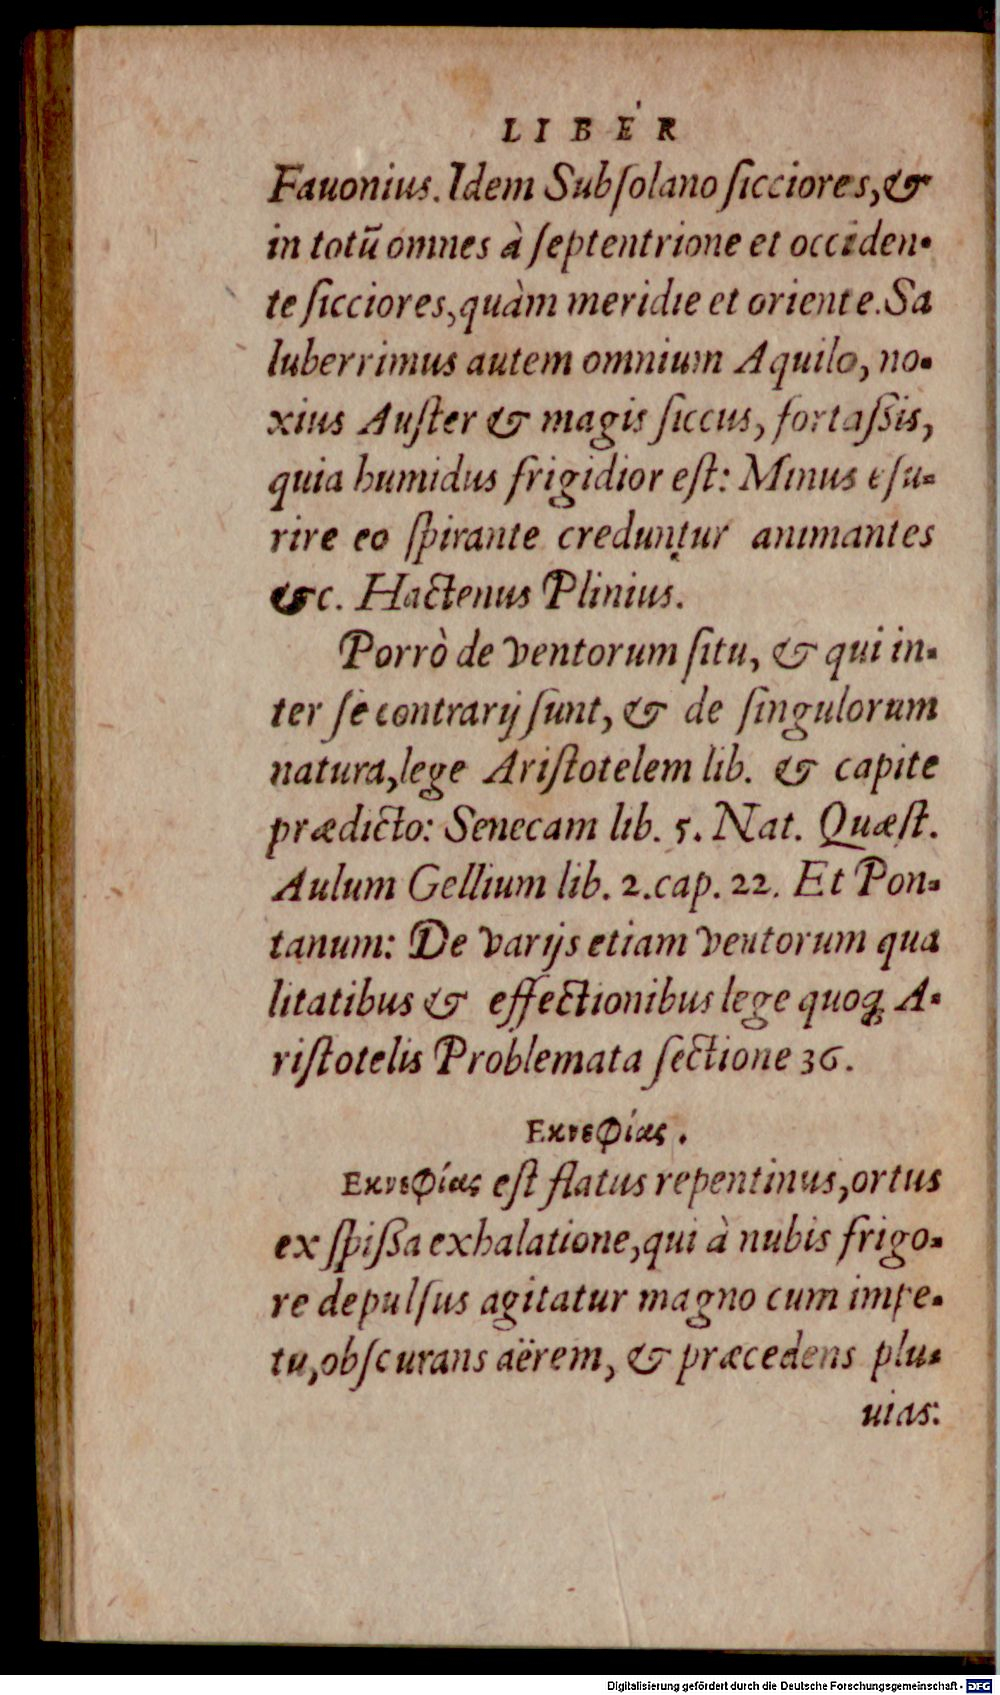 LIBER
Fauonius. Idem Subſolano ſicciores, &
in totũ omnes à ſeptentrione et occiden-
te ſicciores, quàm meridie et oriente. Sa
luberrimus autem omnium Aquilo, no-
xius Auſter & magis ſiccus, fortaßis,
quia humidus frigidior eſt: Minus eſu-
rire eo ſpirante creduntur animantes
&c. Hactenus Plinius.
Porrò de ventorum ſitu, & qui in-
ter ſe contrarij ſunt, & de ſingulorum
natura, lege Ariſtotelem lib. & capite
prædicto: Senecam lib. 5. Nat. Quæſt.
Aulum Gellium lib. 2. cap. 22. Et Pon-
tanum: De varijs etiam ventorum qua
litatibus & effectionibus lege quoq; A-
riſtotelis Problemata ſectione 36.
Εκνεφίας.
Εκνεφίας eſt flatus repentinus, ortus
ex ſpißa exhalatione, qui à nubis frigo-
re depulſus agitatur magno cum impe-
tu, obſcurans aërem, & præcedens plu-
uias:
Digitalisierung gefördert durch die Deutsche Forschungsgemeinschaft - DFG